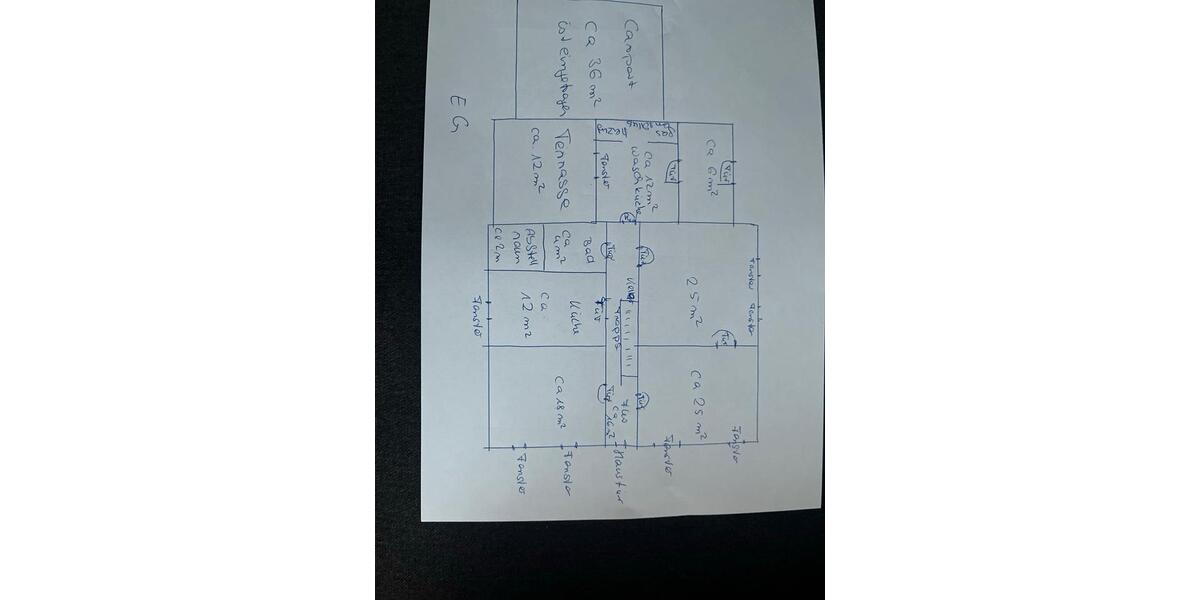 EG
Carport
Ca 36 m²
ist eingetragen
Terrasse
ca. 12 m²
Gas
Heizung
Fenster
Ca 12 m²
Waschküche
Tür
Ca 6 m²
Tür
Tür
Abstell
raum
ca 2 m
Bad
Ca
4 m²
Tür
Tür
25 m²
Fenster
Fenster
Tür
Fenster
Küche
Ca.
12 m²
Tür
Keller
Treppe
Ca 18 m²
Tür
Flur
Ca
16 m²
Tür
Ca 25 m²
Fenster
Fenster
Haustür
Fenster
Fenster